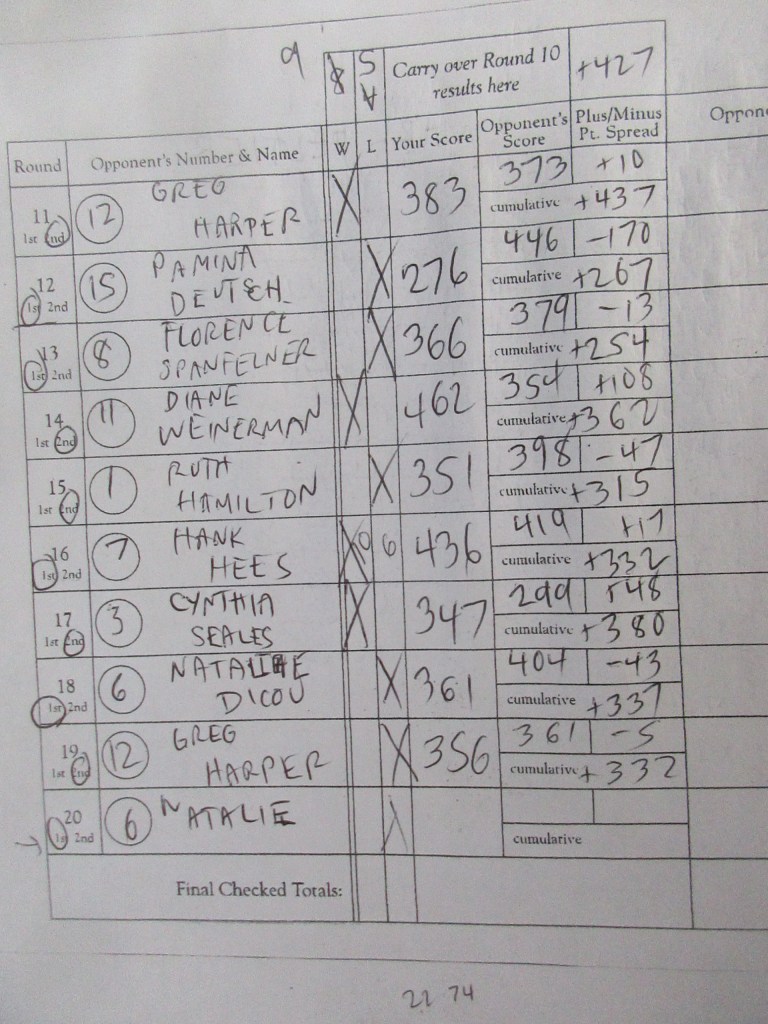 9 8 5 Carry over Round 10 results here +427
Round Opponent's Number & Name W L Your Score Opponent's Score Plus/Minus Pt. Spread
11 1st 2nd 12 GREG HARPER X 383 373 +10
cumulative +437
12 1st 2nd 15 PAMINA DEUTSCH X 276 446 -170
cumulative +267
13 1st 2nd 8 FLORENCE SPANFELNER X 366 379 -13
cumulative +254
14 1st 2nd 11 DIANE WEINERMAN X 462 354 +108
cumulative +362
15 1st 2nd 1 RUTH HAMILTON X 351 398 -47
cumulative +315
16 1st 2nd 7 HANK HEES X 436 419 +17
cumulative +332
17 1st 2nd 3 CYNTHIA SEALES X 347 299 +48
cumulative +380
18 1st 2nd 6 NATALIE DICOU X 361 404 -43
cumulative +337
19 1st 2nd 12 GREG HARPER X 356 361 -5
cumulative +332
20 1st 2nd 6 NATALIE
cumulative
Final Checked Totals:
22 74